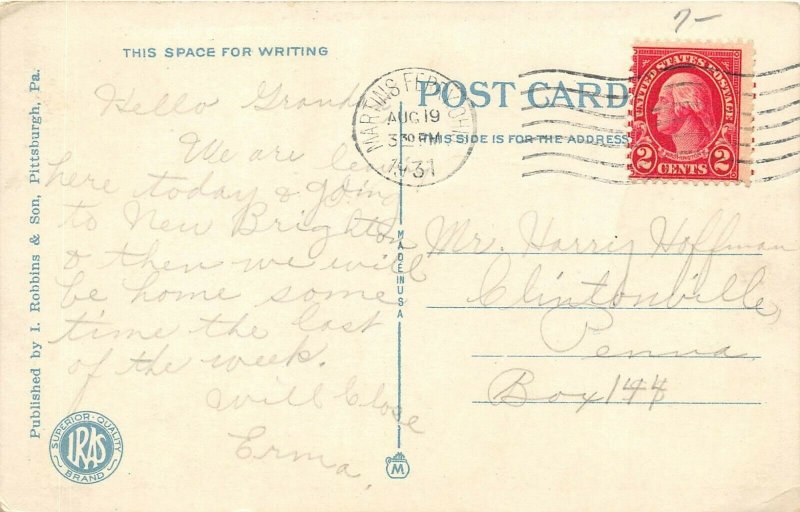 7-
THIS SPACE FOR WRITING
POST CARD
THIS SIDE IS FOR THE ADDRESS
MARTINS FERRY, OHIO
AUG 19
3 30 PM
1931
UNITED STATES POSTAGE
2 CENTS 2
Hello Grand
We are
here today & going
to New Brighton
& then we will
be home some
time the last
of the week.
Will Close
Erma.
MADE IN USA
Mr. Harry Hoffman
Clintonville,
Penna.
Box 144
Published by I. Robbins & Son, Pittsburgh, Pa.
SUPERIOR-QUALITY
IRAS
BRAND
M